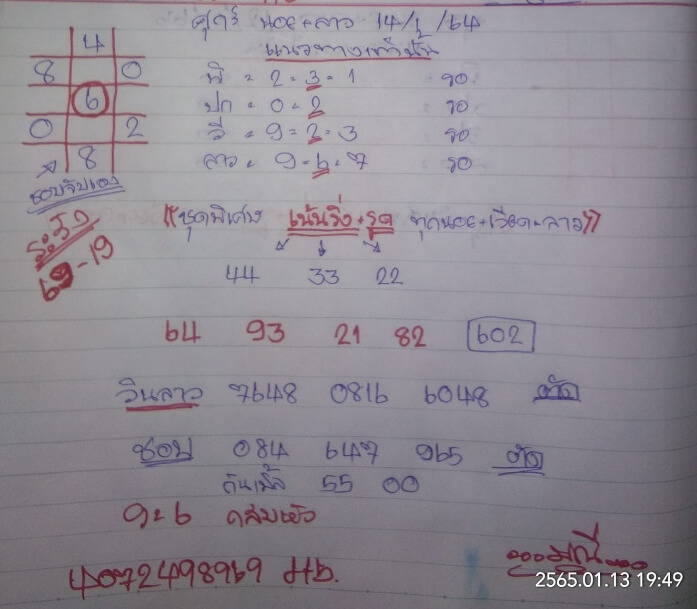 ศุกร์ นอย+ลาว 14/1/64
แนวทางเท่านั้น
4
8 0
6
0 2
8
ชอบจับเอง
ระวัง
69-19
พิ = 2=3=1 รอ
ปก = 0=2 รอ
วี = 9=2=3 รอ
ลาว = 9=6=7 รอ
((ชุดพิเศษ เน้นวิ่ง+รูด ทุกนอย+เวียด+ลาว))
44 33 22
64 93 21 82 602
วินลาว 7648 0816 6048 ตัด
ชอบ 084 647 965 ตัด
กันเบิ้ล 55 00
9=6
4072498969 Hb.
2565.01.13 19:49